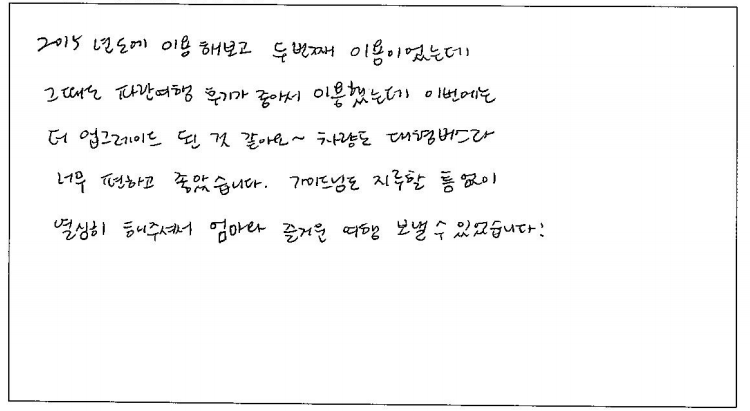 2015 년도에 이용 해보고 두번째 이용이었는데
그때도 파란여행 후기가 좋아서 이용했는데 이번에는
더 업그레이드 된 것 같아요~ 차량도 대형버스라
너무 편하고 좋았습니다. 가이드님도 지루할 틈 없이
열심히 해주셔서 엄마와 즐거운 여행 보낼 수 있었습니다!